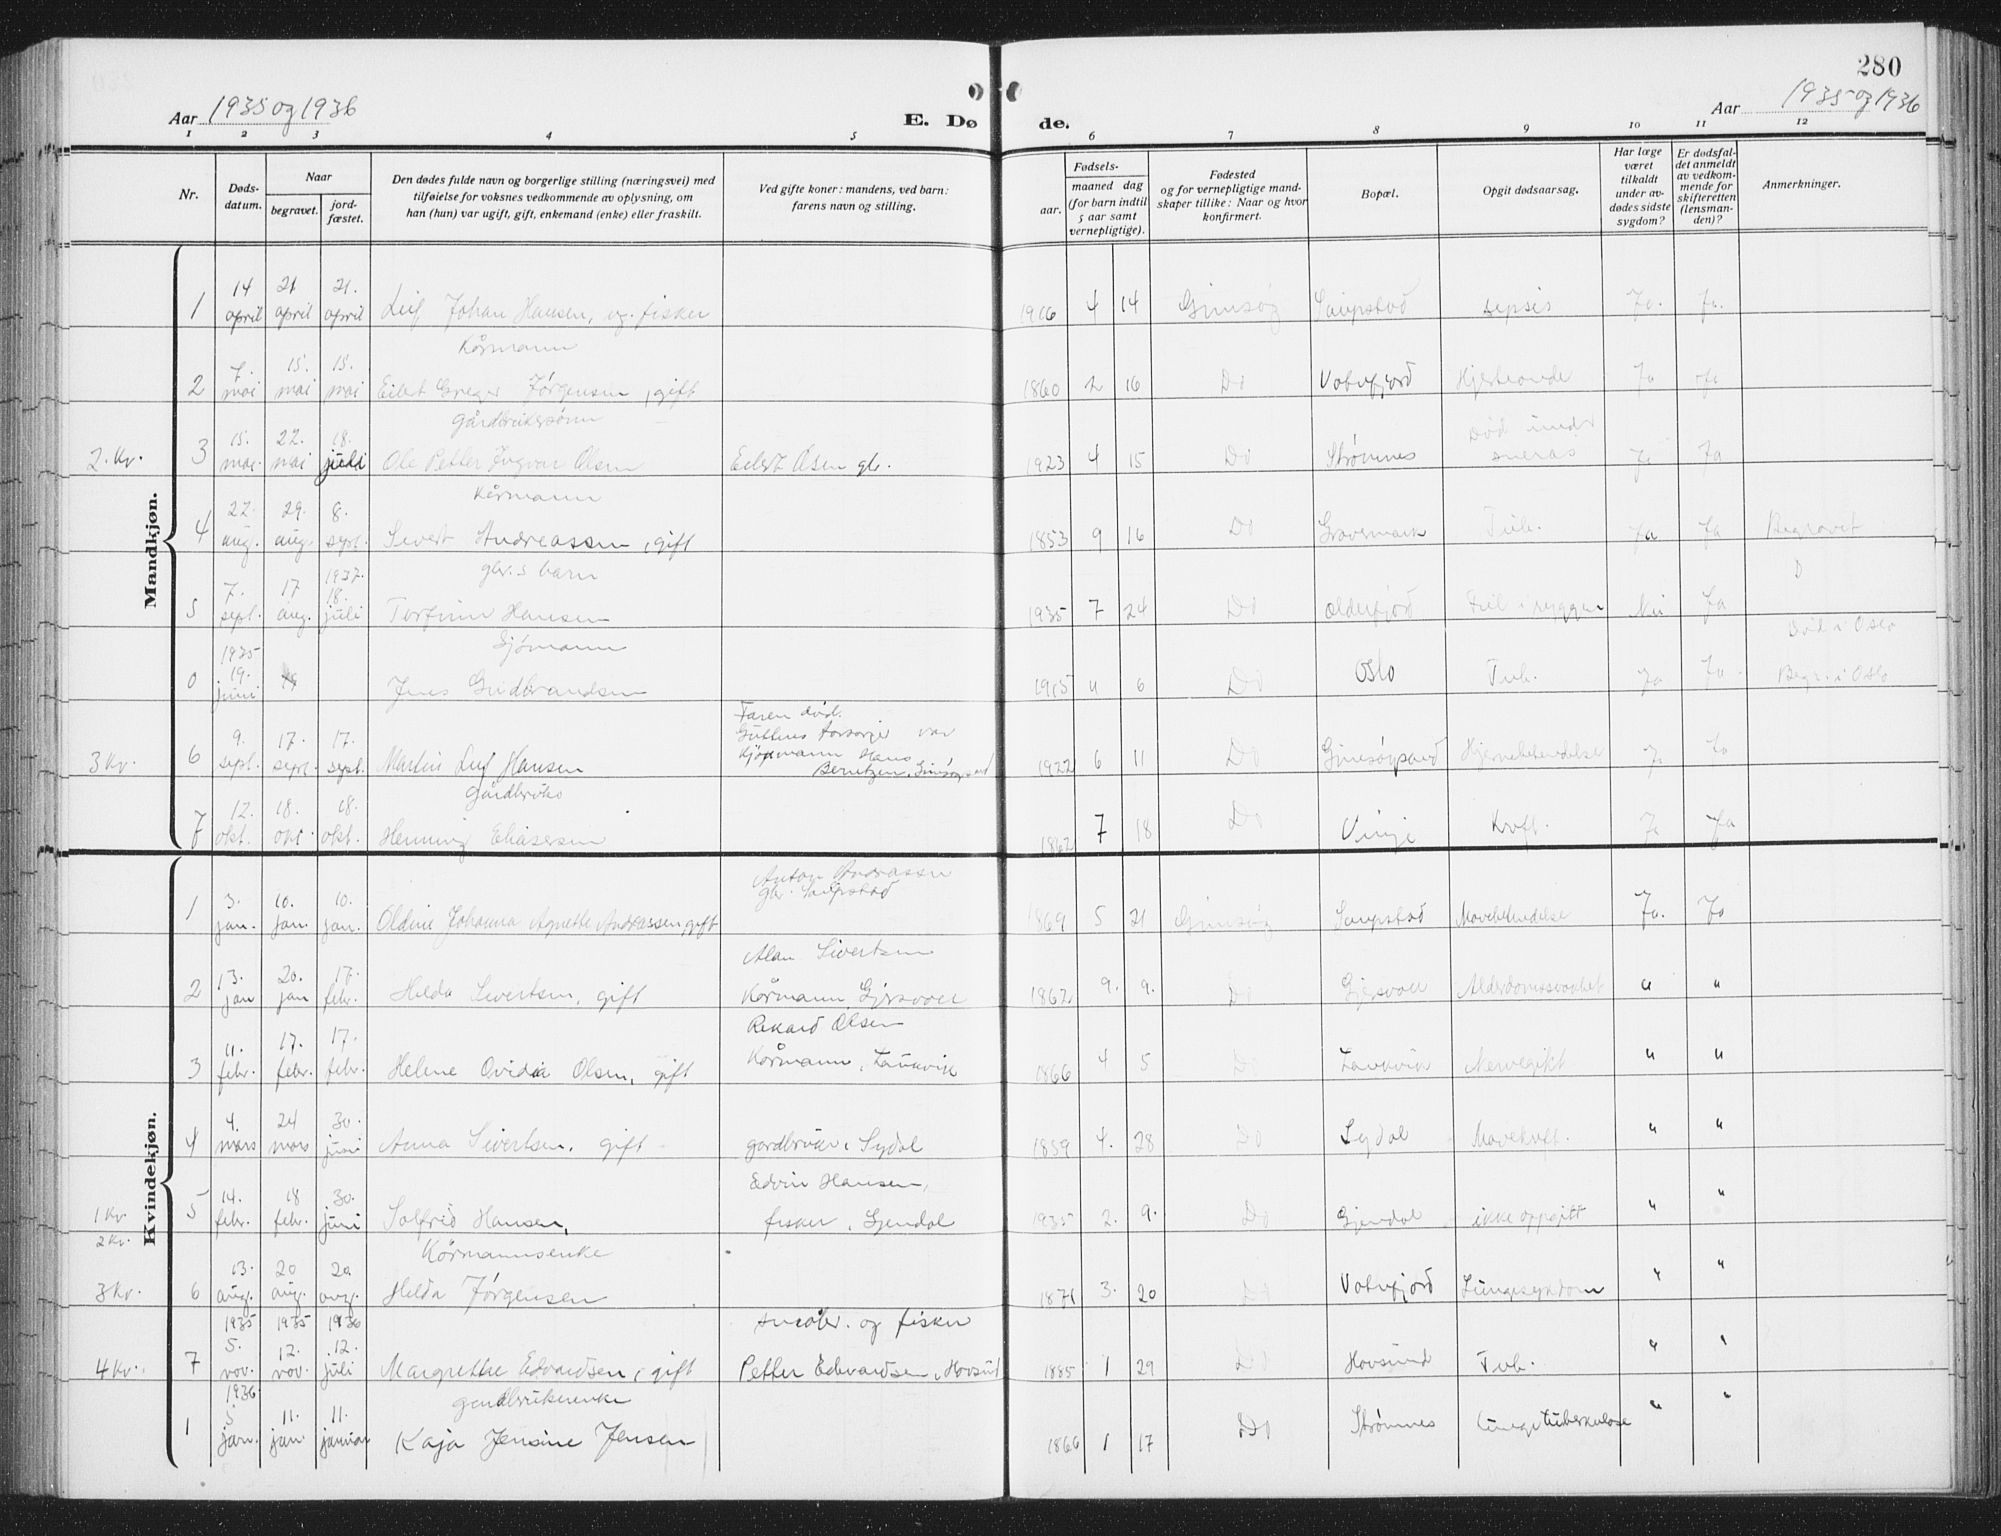 280
Aar 1935 og 1936
E. Dø de.
Aar 1935 og 1936
1 2 3 4 5 6 7 8 9 10 11 12
Nr. Døds-datum. Naar begravet. jord-fæstet. Den dødes fulde navn og borgerlige stilling (næringsvei) med tilføielse for voksnes vedkommende av oplysning, om han (hun) var ugift, gift, enkemand (enke) eller fraskilt. Ved gifte koner: mandens, ved barn: farens navn og stilling. Fødsels- aar. maaned dag (for barn indtil 5 aar samt vernepligtige). Fødested og for vernepligtige mandskaper tillike: Naar og hvor konfirmert. Bopæl. Opgit dødsaarsag. Har læge været tilkaldt under avdødes sidste sygdom? Er dødsfaldet anmeldt av vedkommende for skifteretten (lensmanden)? Anmerkninger.
Mandkjøn.
1 14 april 21 april 21. april Leif Johan Hansen, ug. fisker 1916 4 14 Gimsøy Saupstad sepsis Ja. Ja.
Kårmann
2 7. mai 15. mai 15. mai Eilert Greger Jørgensen, gift 1860 2 16 Do Vatnfjord Ja Ja
Gårdbrukersønn
2. Kv. 3 15. mai 22. mai 18. juli Ole Petter Ingvar Olsen Eilert Olsen gb. 1923 4 15 Do Strømnes Død under Ja Ja
Kårmann
4 22. aug. 29. aug. 8. sept. Sivert Andreassen, gift 1853 9 16 Do Gravermark Tub. Ja Ja Begravet
gbr.s barn
5 7. sept. 17 aug. 1937. 18. juli Torfinn Hansen 1935 7 24 Do Olderfjord Feil i ryggen Nei Ja
Sjømann Død i Oslo
0 1935 19. juni Jens Gudbrandsen 1915 4 6 Do Oslo Tub. Ja Ja Begr. i Oslo
Faren død.
Guttens forsørger var
3 Kv. 6 9. sept. 17. sept. 17. sept. Martin Leif Hansen Kjøpmann Hans Berntzen, Gimsøysand 1922 6 11 Do Gimsøysand Hjernebetendelse Ja Ja
Gårdbruker
7 12. okt. 18. okt. 18. okt. Henning Eliassen 1862 7 18 Do Vinje Kreft. Ja Ja
Kvindekjøn.
Anton Andreassen
1 3. jan. 10. jan. 10. jan. Oldine Johanna Agnethe Andreassen, gift gbr. Saupstad 1869 5 21 Gimsøy Saupstad Mavebetendelse Ja. Ja
Alan Sivertsen
2 13. jan 20. jan 17. febr. Hilda Sivertsen, gift Kårmann Gjersvoll 1862 9. 9. Do Gjersvoll Alderdomssvakhet " "
Rikard Olsen
3 11. febr. 17. febr. 17. febr. Helene Ovidia Olsen, gift Kårmann, Laukvik 1866 4 5 Do Laukvik Nervegikt " "
4 4. mars 24 mars 30. juni Anna Sivertsen, gift gardbruker, Sydal 1859 4. 28 Do Sydal Mavekreft. " "
Edvin Hansen,
1 Kv. 5 14. febr. 18 febr. 30. juni Solfrid Hansen, fisker, Gjendal 1935 2. 9. Do Gjendal ikke oppgitt " "
2 Kv. Kårmannsenke
3 Kv. 6 13. aug. 20 aug. 20 aug. Hilda Jørgensen 1871 3. 20 Do Vatnfjord Lungesykdom " "
1935 1935 1936 og fisker
4 Kv. 7 5. nov. 12. nov. 12. juli Margrethe Edvardsen, gift Petter Edvardsen, Hovsund 1885 1 29 Do Hovsund Tub. " "
1936 gardbrukerenke
1 5 jan. 11. jan. 11. januar Kaja Jensine Jensen 1866 1 17 Do Strømnes Lungetuberkulose " "